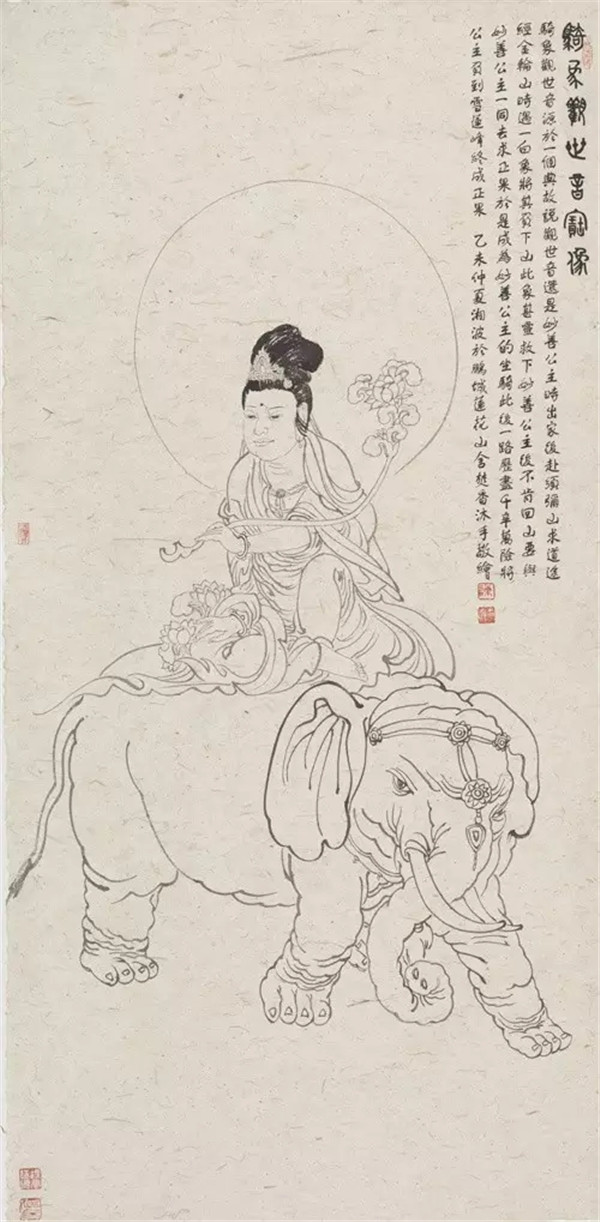 騎象觀世音寶像
騎象觀世音源於一個典故說觀世音還是妙善公主時出家後赴須彌山求道途
經金輪山時遇一白象將其負下山此象甚靈救下妙善公主後不肯回山要與
妙善公主一同去求正果於是成為妙善公主的坐騎此後一路歷盡千辛萬險將
公主負到雪蓮峰終成正果 乙未仲夏湘波於鵬城蓮花山舍焚香沐手敬繪